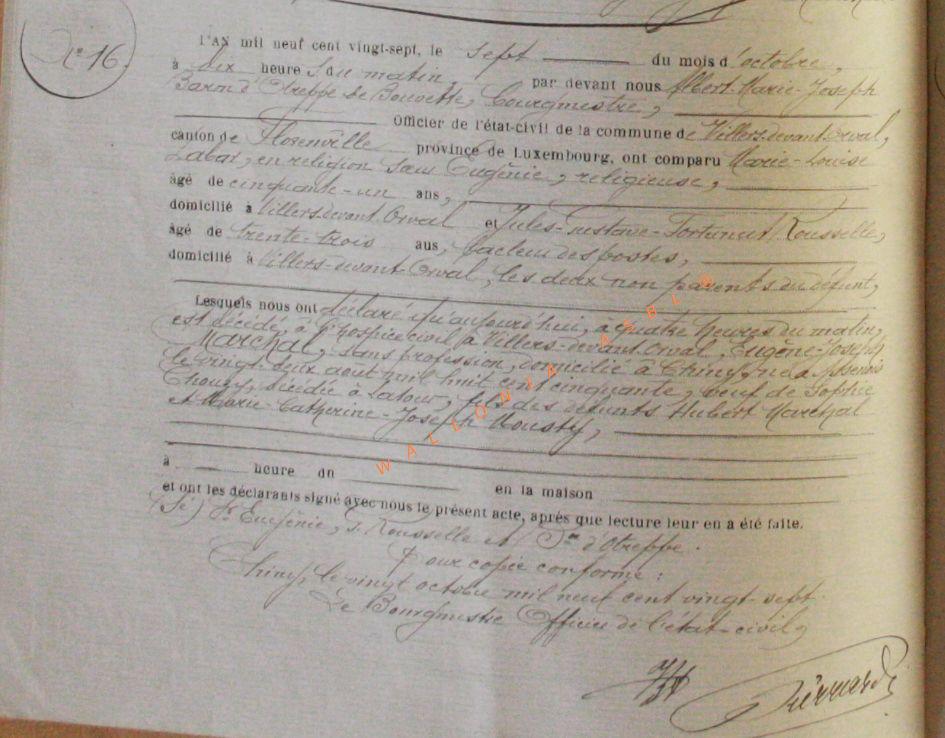 N° 16.
L'AN mil neuf cent vingt-sept, le sept du mois d'octobre,
à dix heures du matin, par devant nous Albert-Marie-Joseph
Baron d'Otreppe de Bouvette, Bourgmestre,
Officier de l'état-civil de la commune de Villers-devant-Orval,
canton de Florenville province de Luxembourg, ont comparu Marie-Louise
Labar, en religion Sœur Eugénie, religieuse,
âgé de cinquante-un ans,
domicilié à Villers-devant-Orval et Jules-Gustave-Fortunat Rousselle,
âgé de trente-trois ans, facteur des postes,
domicilié à Villers-devant-Orval, les deux non parents du défunt,
Lesquels nous ont déclaré qu'aujourd'hui, à quatre heures du matin,
est décédé, à l'hospice civil à Villers-devant-Orval, Eugène-Joseph
Marchal, sans profession, domicilié à Chiny, né à
le vingt-deux aout mil huit cent cinquante, veuf de Sophie
décédée à Latour, fils des défunts Hubert Marchal
et Marie-Catherine-Joseph Mousty,
à heure du en la maison
et ont les déclarants signé avec nous le présent acte, après que lecture leur en a été faite.
(Sé) Sr Eugénie, J. Rousselle et Bon d'Otreppe.
Pour copie conforme :
Chiny, le vingt octobre mil neuf cent vingt-sept.
Le Bourgmestre Officier de l'état-civil,
WALLONIA ASBL